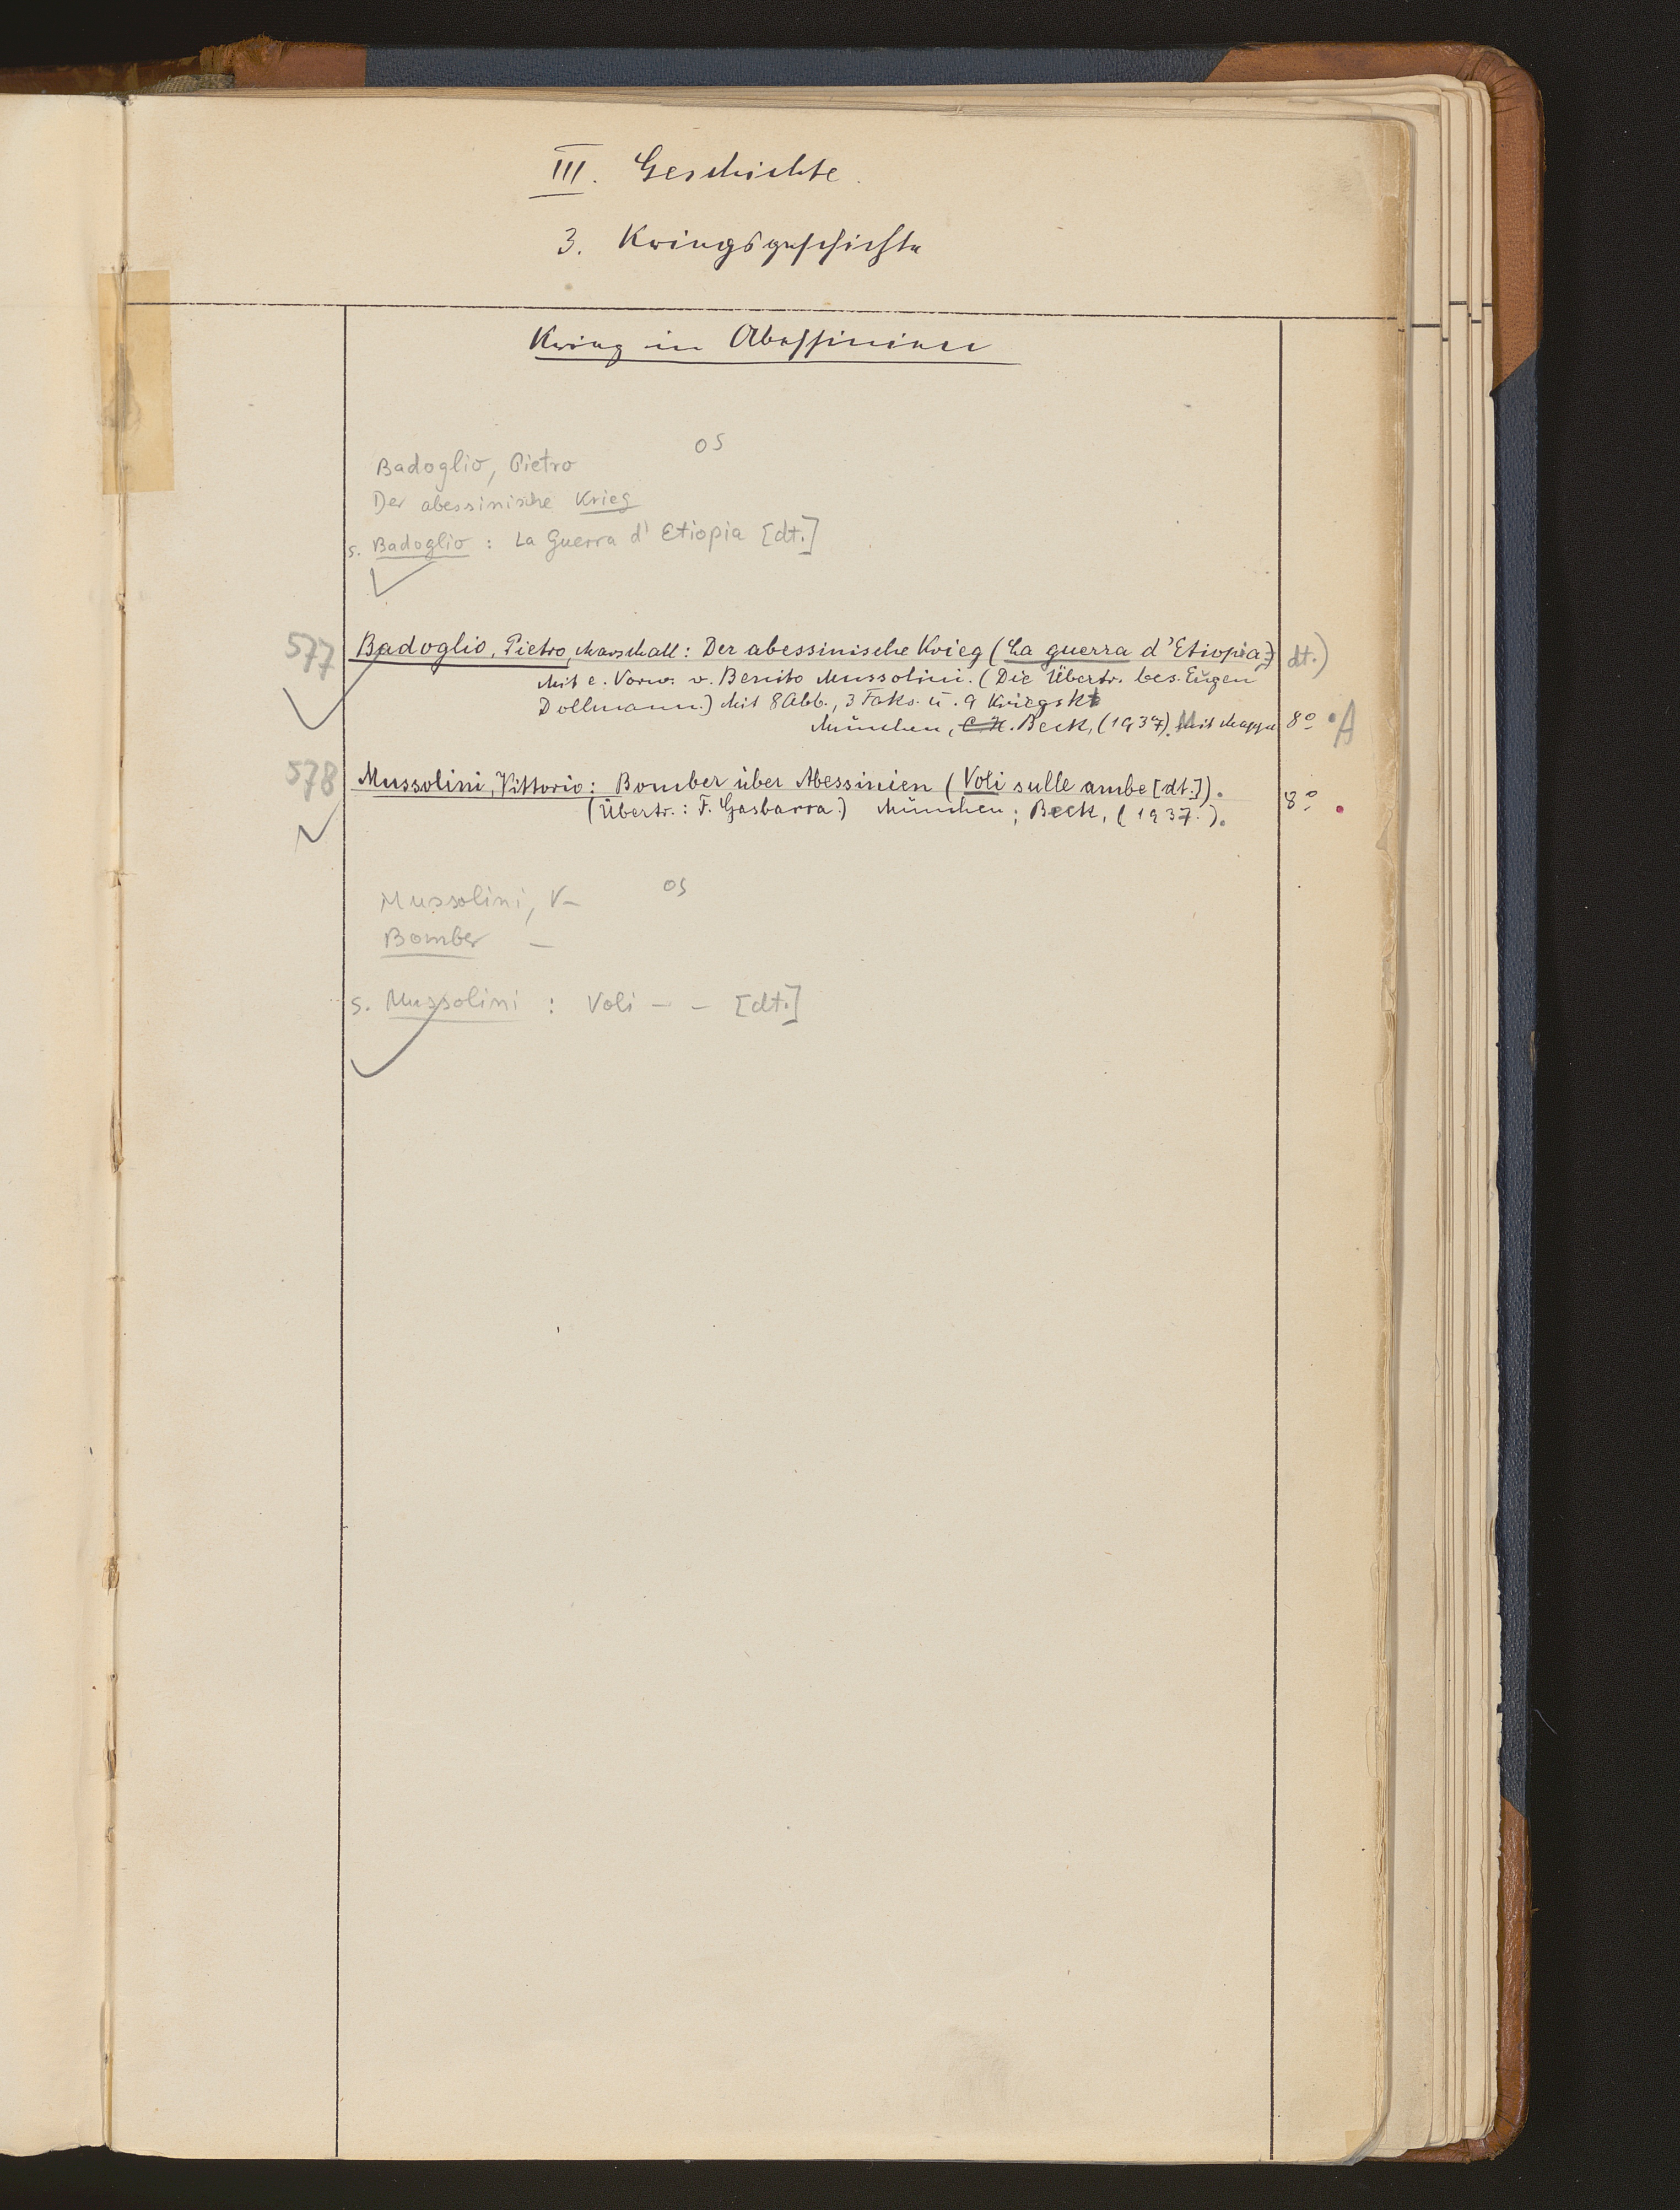 III. Geschichte.
3. Kriegsgeschichte
Krieg in Abessinien
OS
Badoglio, Pietro
Der abessinische Krieg
s. Badoglio : La Guerra d'Etiopia [dt.]
577 Badoglio, Pietro, Marschall: Der abessinische Krieg (La guerra d'Etiopia, dt.)
Mit e. Vorw. v. Benito Mussolini. (Die Übertr. bes. Eugen
Dollmann.) Mit 8 Abb., 3 Faks. u. 9 Kriegskt
München, C. H. Beck, (1937). Mit Mappe 8° A
578 Mussolini, Vittorio: Bomber über Abessinien (Voli sulle ambe [dt.]).
(Übertr.: F. Gasbarra.) München; Beck, (1937.). 8°
OS
Mussolini, V–
Bomber –
s. Mussolini : Voli – – [dt.]